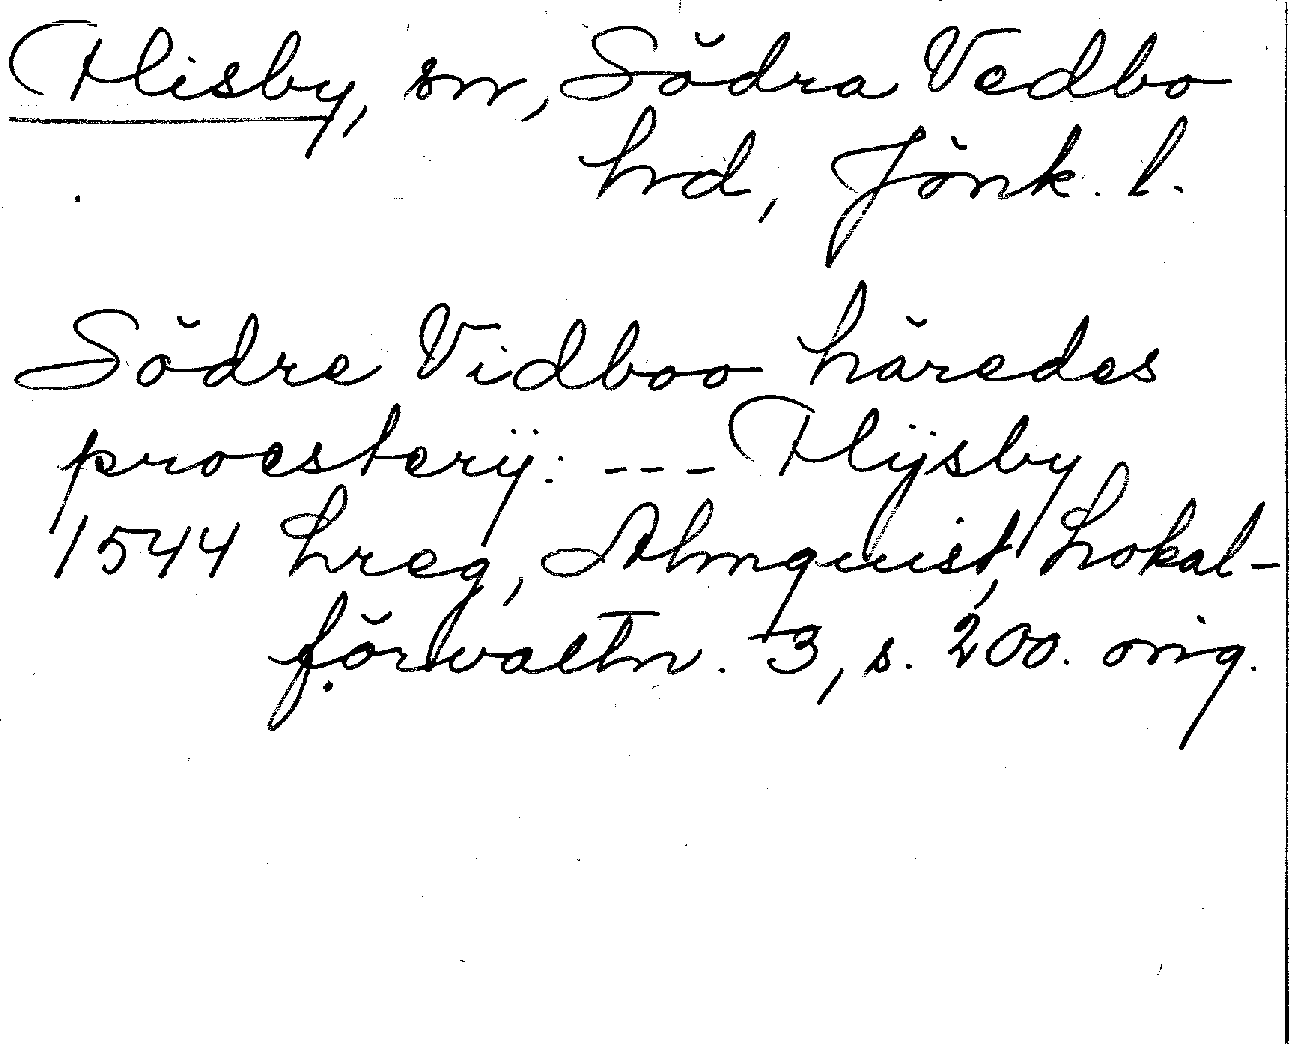 Flisby, sn, Södra Vedbo
hrd, Jönk. l.
Södre Vidboo häredes
proesterÿ: --- Flÿsby
1544 Lreg, Almquist, Lokal-
förvaltn. 3, s. 200. orig.